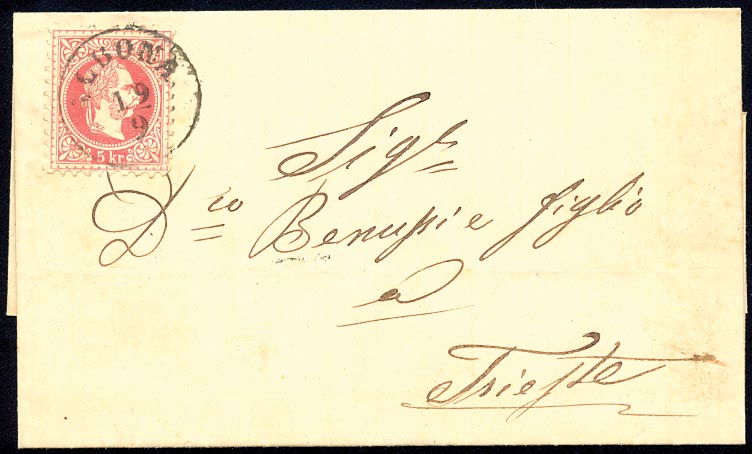 ALBONA
19
9
5 kr.
Sigr
Dco Benussi e figlio
a
Trieste